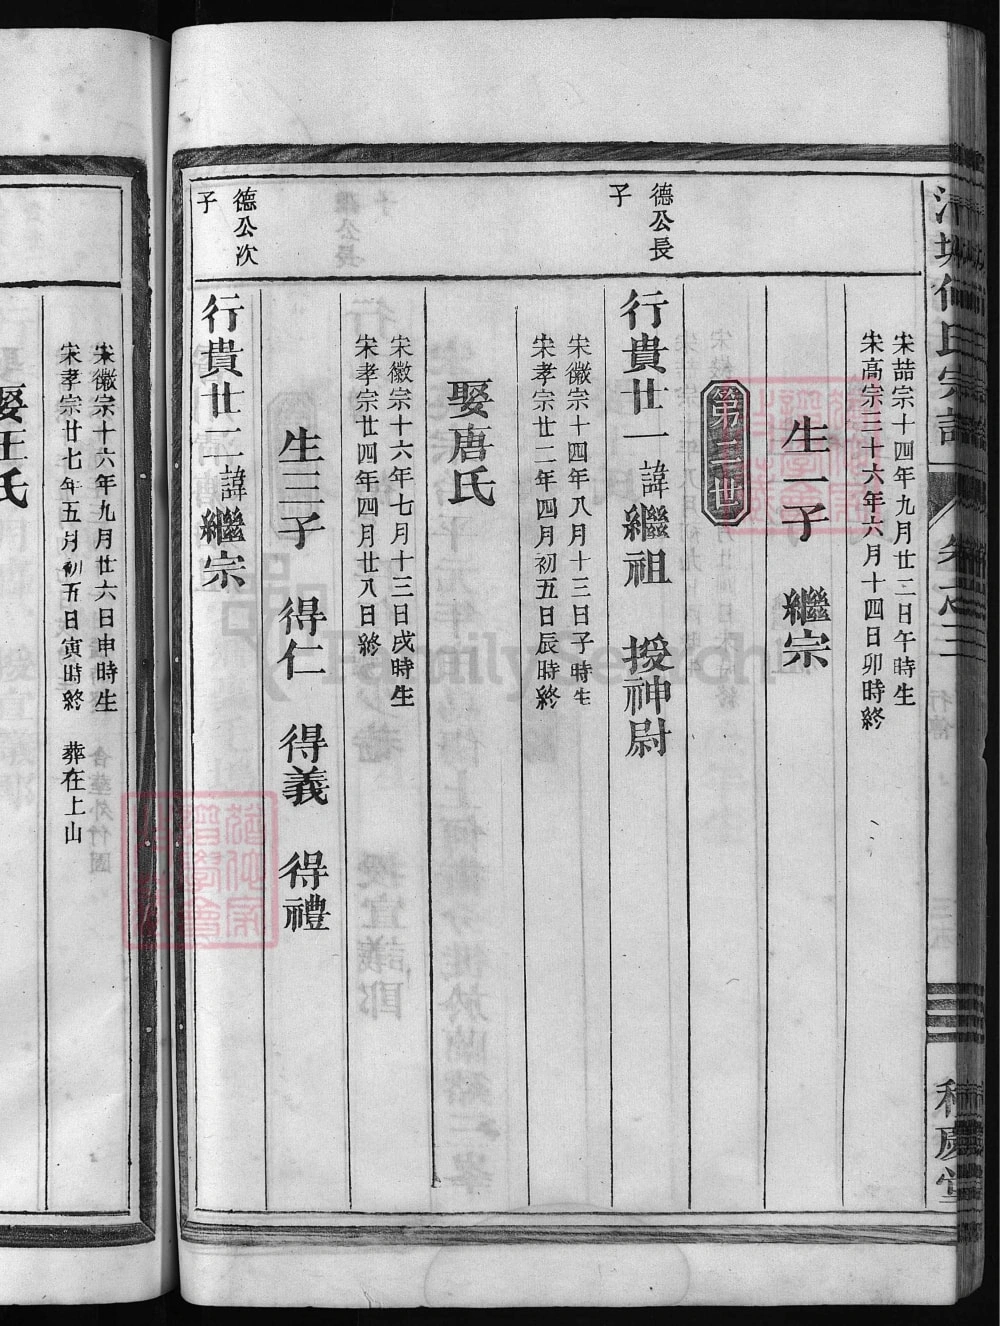 宋喆宗十四年九月廿三日午時生
宋高宗三十六年六月十四日卯時終
生一子　繼宗
第三世
德公長子
行貴廿一諱繼祖　授神尉
宋徽宗十四年八月十三日子時生
宋孝宗廿二年四月初五日辰時終
娶唐氏
宋徽宗十六年七月十三日戌時生
宋孝宗廿四年四月廿八日終
生三子　得仁　得義　得禮
德公次子
行貴廿二諱繼宗
宋徽宗十六年九月廿六日申時生
宋孝宗廿七年五月初五日寅時終　葬在上山
娶汪氏
和慶堂
FamilySearch